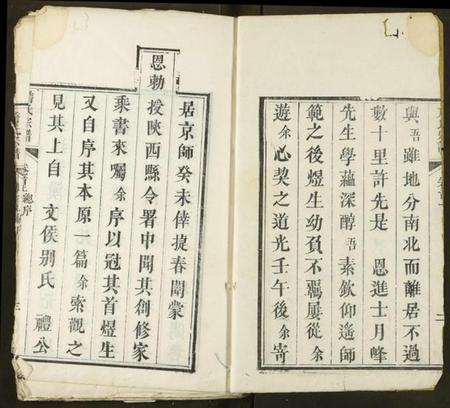 與吾雖地分南北而離居不過
數十里許先是 恩進士月峰
先生學蘊深醇吾素欽仰遙師
範之後煜生幼負不羈屢從余
遊余心契之道光壬午後余寄
居京師癸未倖捷春闈蒙
恩勅授陝西縣令署中聞其創修家
乘書來囑余序以冠其首煜生
又自序其本原一篇余索觀之
見其上自 文侯別氏 禮公